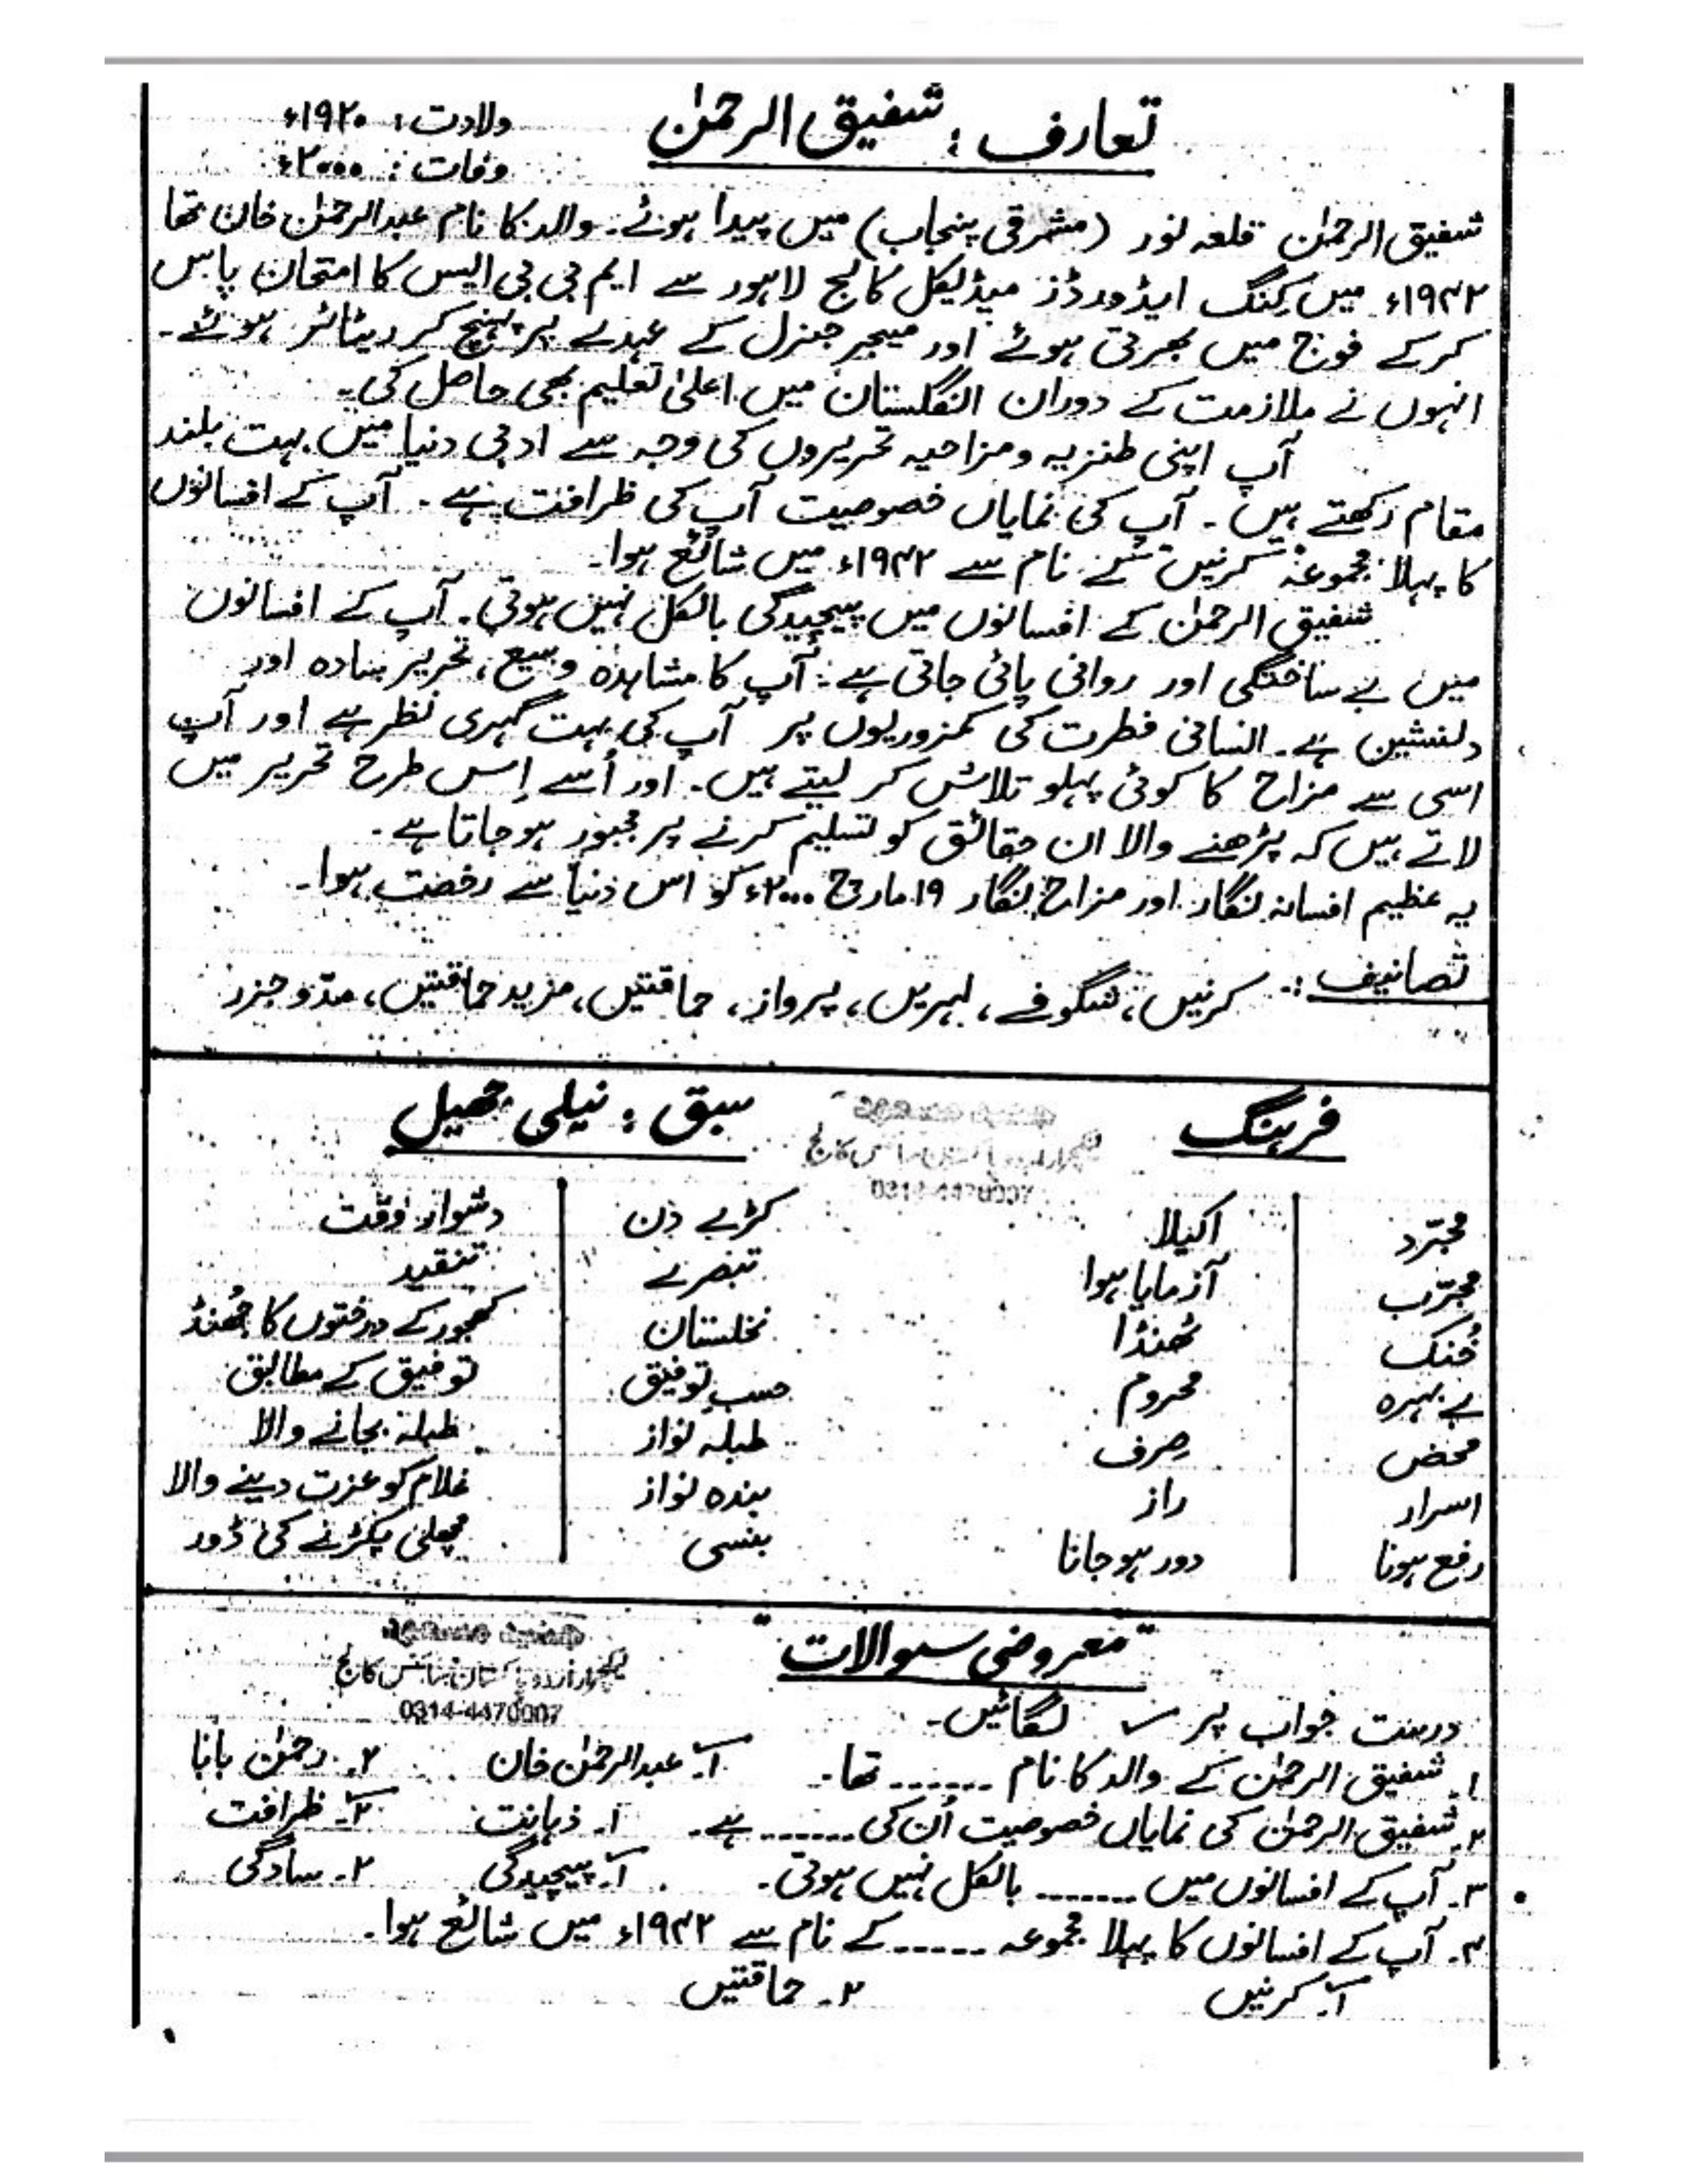 تعارف : شفیق الرحمٰن
ولادت : ۱۹۲۰ء
وفات : ۲۰۰۰ء
شفیق الرحمٰن قلعہ نور (مشرقی پنجاب) میں پیدا ہوئے۔ والد کا نام عبدالرحمٰن خان تھا
۱۹۴۲ء میں کنگ ایڈورڈز میڈیکل کالج لاہور سے ایم بی بی ایس کا امتحان پاس
کرکے فوج میں بھرتی ہوئے اور میجر جنرل کے عہدے پر پہنچ کر ریٹائر ہوئے۔
انہوں نے ملازمت کے دوران انگلستان میں اعلیٰ تعلیم بھی حاصل کی۔
آپ اپنی طنزیہ و مزاحیہ تحریروں کی وجہ سے ادبی دنیا میں بہت بلند
مقام رکھتے ہیں۔ آپ کی نمایاں خصوصیت آپ کی ظرافت ہے۔ آپ کے افسانوں
کا پہلا مجموعہ "کرنیں" کے نام سے ۱۹۴۲ء میں شائع ہوا۔
شفیق الرحمٰن کے افسانوں میں پیچیدگی بالکل نہیں ہوتی۔ آپ کے افسانوں
میں بے ساختگی اور روانی پائی جاتی ہے۔ آپ کا مشاہدہ وسیع، تحریر سادہ اور
دلنشین ہے۔ انسانی فطرت کی کمزوریوں پر آپ کی بہت گہری نظر ہے اور آپ
اسی سے مزاح کا کوئی پہلو تلاش کر لیتے ہیں۔ اور اُسے اِس طرح تحریر میں
لاتے ہیں کہ پڑھنے والا ان حقائق کو تسلیم کرنے پر مجبور ہو جاتا ہے۔
یہ عظیم افسانہ نگار اور مزاح نگار ۱۹ مارچ ۲۰۰۰ء کو اس دنیا سے رخصت ہوا۔
تصانیف :۔ کرنیں، شگوفے، لہریں، پرواز، حماقتیں، مزید حماقتیں، مدّو جزر
فرہنگ
سبق : نیلی جھیل
لیکچرار اردو پاکستان سائنس کالج
0314-4470007
مجرّد اکیلا کڑے دن دشوار وقت
مجرّب آزمایا ہوا تبصرے تنقید
خُنک ٹھنڈا نخلستان کھجور کے درختوں کا جُھنڈ
بے بہرہ محروم حسبِ توفیق توفیق کے مطابق
محض صِرف طبلہ نواز طبلہ بجانے والا
اسرار راز بندہ نواز غلام کو عزت دینے والا
رفع ہونا دور ہو جانا بنسی مچھلی پکڑنے کی ڈور
"معروضی سوالات"
لیکچرار اردو پاکستان سائنس کالج
0314-4470007
درست جواب پر ✓ لگائیں۔
۱۔ شفیق الرحمٰن کے والد کا نام ------ تھا۔ ۱۔ عبدالرحمٰن خان ۲۔ رحمٰن بابا
۲۔ شفیق الرحمٰن کی نمایاں خصوصیت اُن کی ------- ہے۔ ۱۔ ذہانت ۲۔ ظرافت
۳۔ آپ کے افسانوں میں ------- بالکل نہیں ہوتی۔ ۱۔ پیچیدگی ۲۔ سادگی
۴۔ آپ کے افسانوں کا پہلا مجموعہ ----- کے نام سے ۱۹۴۲ء میں شائع ہوا۔
۱۔ کرنیں ۲۔ حماقتیں